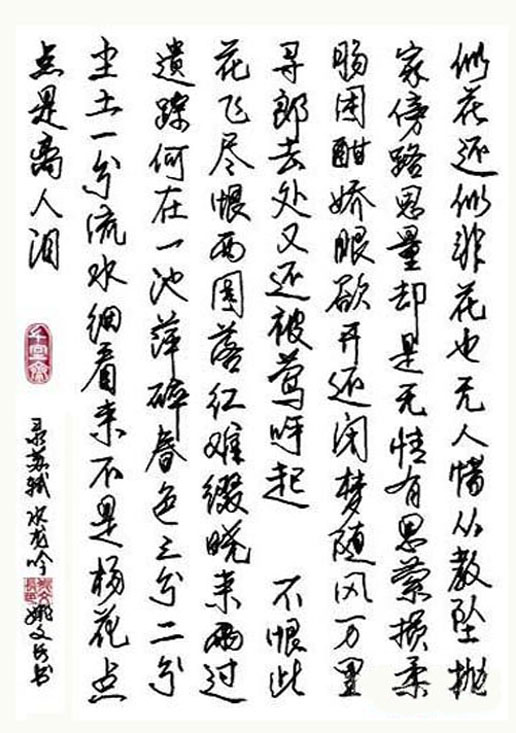 似花还似非花也无人惜从教坠抛
家傍路思量却是无情有思萦损柔
肠困酣娇眼欲开还闭梦随风万里
寻郎去处又还被莺呼起 不恨此
花飞尽恨西园落红难缀晓来雨过
遗踪何在一池萍碎春色三分二分
尘土一分流水细看来不是杨花点
点是离人泪
录苏轼水龙吟